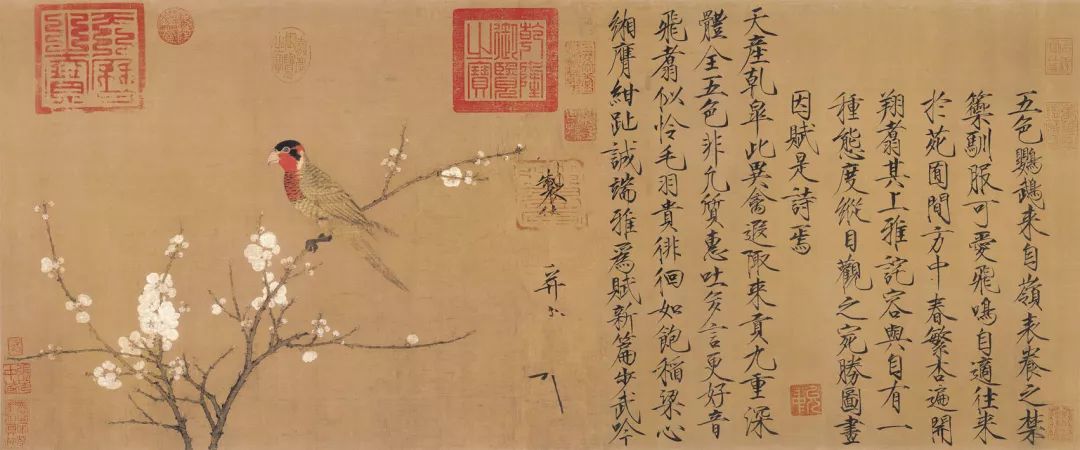 五色鸚鵡來自嶺表養之禁
籞馴服可愛飛鳴自適往來
於苑囿間方中春繁杏遍開
翔翥其上雅詫容與自有一
種態度縱目觀之宛勝圖畫
因賦是詩焉
天產乾皋此異禽遐陬來貢九重深
體全五色非凡質惠吐多言更好音
飛翥似怜毛羽貴徘徊如飽稻粱心
緗膺紺趾誠端雅爲賦新篇步武吟
製
并
乾隆御覽之寶